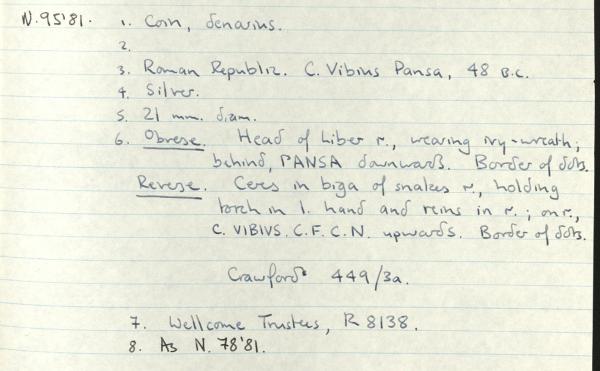 N.95'81. 1. Coin, denarius.
2.
3. Roman Republic. C. Vibius Pansa, 48 B.C.
4. Silver.
5. 21 mm. diam.
6. Obverse. Head of Liber r., wearing ivy-wreath;
behind, PANSA downwards. Border of dots.
Reverse. Ceres in biga of snakes r., holding
torch in l. hand and reins in r.; on r.,
C. VIBIVS. C.F. C.N. upwards. Border of dots.
Crawford 449/3a.
7. Wellcome Trustees, R 8138.
8. As N. 78'81.